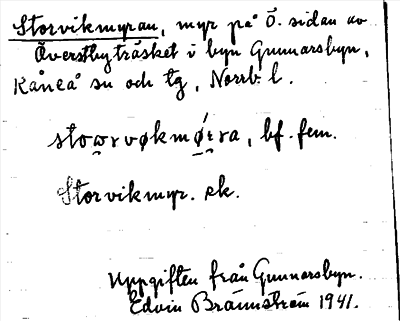 Storvikmyran, myr på Ö. sidan av
Överstbyträsket i byn Gunnarsbyn,
Råneå sn och tg, Norrb. l.
stowrvøkmǿ̜rra, bf. fem.
Storvikmyr. ek.
Uppgiften från Gunnarsbyn.
Edvin Brännström 1941.